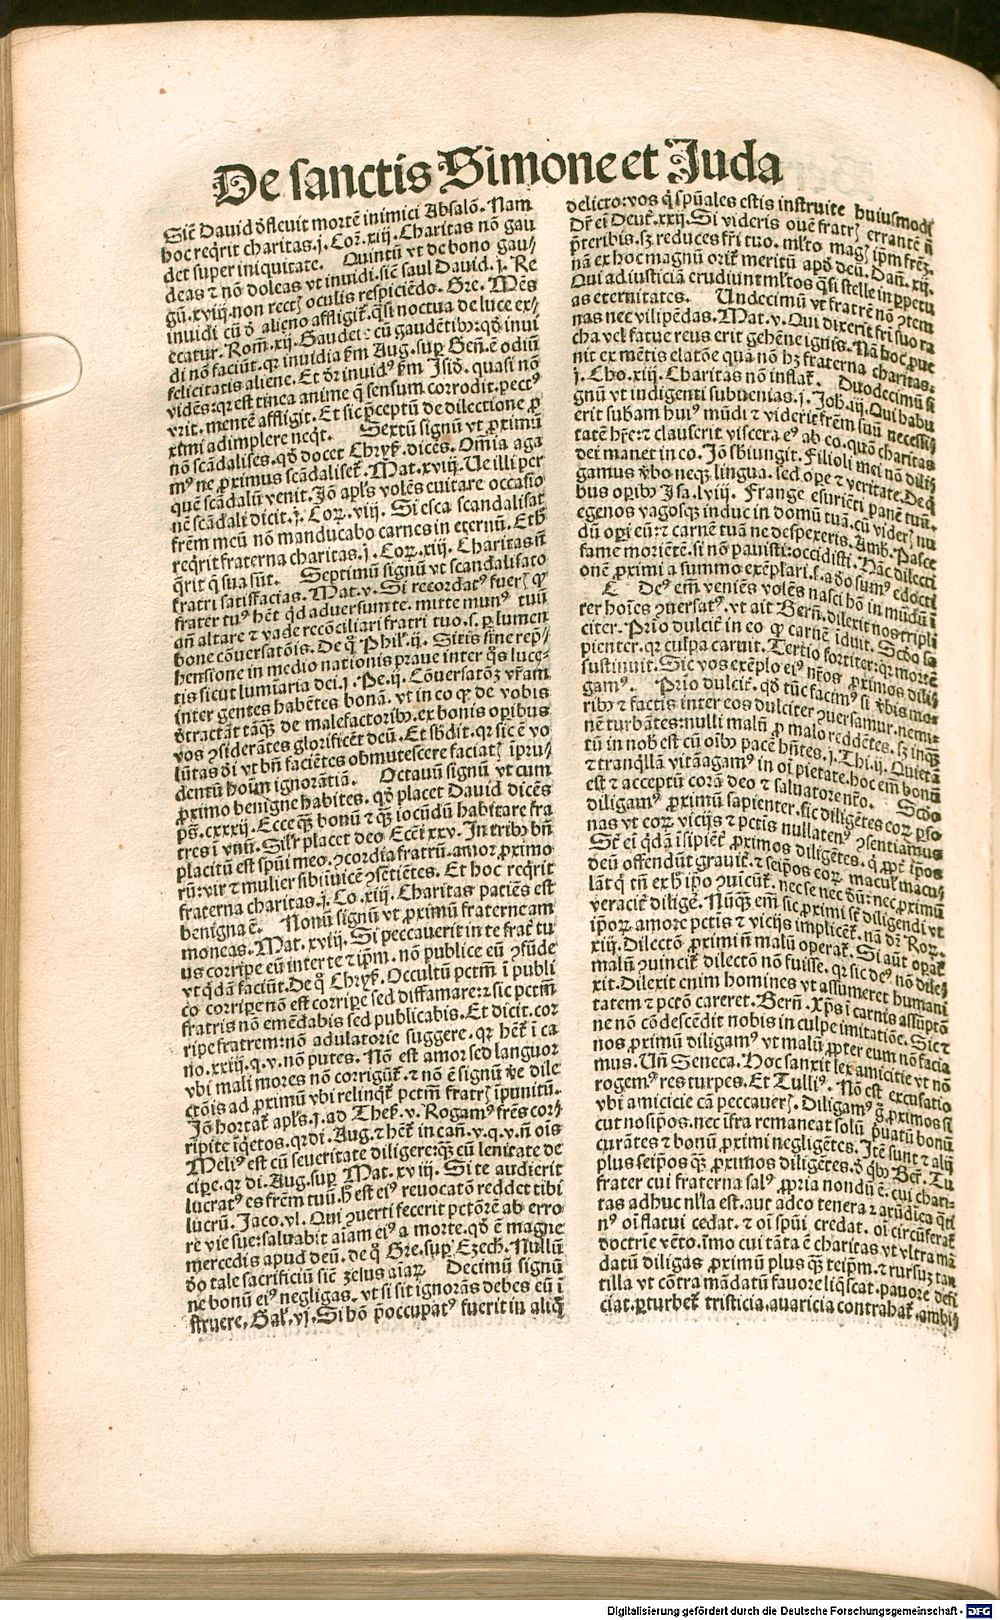 De sanctis Simone et Juda
Sicẽ Dauid ꝺefleuit mortẽ inimici Absalõ. Nam
hoc reqͥrit charitas. j. Coꝝ. xiij. Charitas nõ gau
det super iniquitate. Quintũ vt de bono gau⸗
deas ⁊ nõ doleas vt inuidi. sicẽ saul Dauid. j. Re
gũ. xviij. non rectꝭ oculis respiciẽdo. Gre. Mẽs
inuidi cũ ꝺe alieno affligit᷑. qͣsi noctua de luce ex⸗
cecatur. Rom̃. xij. Gaudete cũ gaudẽtibꝰ: qꝺ inui
di nõ faciũt. qꝛ inuidia ẜm Aug. suꝑ Geñ. ẽ odiũ
felicitatis aliene. Et ꝺr̃ inuidꝰ ẜm Isid. quasi nõ
vidẽs: qꝛ est tinea anime q̃ sensum corrodit. pectꝰ
vrit. mentẽ affligit. Et sic p̃ceptũ de dilectione ꝓ
ximi adimplere neqͥt. Sextũ signũ vt ꝓximũ
nõ scãdalises. qꝺ docet Chryſ. dicẽs. Om̃ia aga
mꝰ ne ꝓximus scãdaliset᷑. Mat. xviij. Ue illi per
quẽ scãdalũ venit. Jõ apl̃s volẽs euitare occasio
nẽ scãdali dicit. j. Coꝝ. viij. Si esca scandalisat
fr̃em meũ nõ manducabo carnes in eternũ. Et ħ
reqͥrit fraterna charitas. j. Coꝝ. xiij. Charitas nõ
q̃rit q̃ sua sũt. Septimũ signũ vt scandalisato
fratri satisfacias. Mat. v. Si recordatꝰ fuerꝭ ꝙ
frater tuꝰ hẽt qͥd aduersum te. mitte munꝰ tuũ
añ altare ⁊ vade recõciliari fratri tuo. s. ꝑ lumen
bone cõuersatõis. De qͦ Phil̃. ij. Sitis sine rep̃⸗
hensione in medio nationis praue inter qͦs luce⸗
tis sicut lumĩaria dei. j. Pe. ij. Cõuersatõꝫ vr̃am
inter gentes habẽtes bonã. vt in eo ꝙ de vobis
ꝺtractãt tãqͣꝫ de malefactoribꝰ. ex bonis oꝑibus
vos ꝯsiderãtes glorificẽt deũ. Et sb̃dit. qꝛ sic ẽ vo
lũtas ꝺi vt bñ faciẽtes obmutescere faciatꝭ ĩpru⸗
dentũ hoĩm ignorãtiã. Octauũ signũ vt cum
ꝓximo benigne habites. qꝺ placet Dauid dicẽs
ps̃. cxxxij. Ecce qͣꝫ bonũ ⁊ qͣꝫ iocũdũ habitare fra
tres ĩ vnũ. Sil̃r placet deo. Ecci xxv. In tribꝰ bñ
placitũ est spũi meo. ꝯcordia fratrũ. amor ꝓximo
rũ: vir ⁊ mulier sibiĩuicẽ ꝯsẽtiẽtes. Et hoc reqͥrit
fraterna charitas. j. Co. xiij. Charitas patiẽs est
benigna ẽ. Nonũ signũ vt ꝓximũ fraterne am
moneas. Mat. xviij. Si peccauerit in te frat̃ tu
us corripe eũ inter te ⁊ ip̃m. nõ publice eũ ꝯfũde
vt qͥdã faciũt. De qͦ Chryſ. Occultũ pctm̃ ĩ publi
co corripe nõ est corripe sed diffamare: ⁊ sic pctm̃
fratris nõ emẽdabis sed publicabis. Et dicit. cor
ripe fratrem: nõ adulatorie suggere. qꝛ hẽt᷑ ĩ ca
no. xxiij. q. v. nõ putes. Nõ est amor sed languor
vbi mali mores nõ corrigũt᷑. ⁊ nõ ẽ signũ ꝟe dile
ctõis ad ꝓximũ vbi relinqͥt᷑ pctm̃ fratrꝭ ĩpunitũ.
Jõ hortat᷑ apl̃s. j. ad Theſ. v. Rogamꝰ fr̃es cor⸗
ripite iqͥetos. qꝛ di. Aug. ⁊ hẽt᷑ in cañ. v. q. v. ñ oĩs
Meliꝰ est cũ seueritate diligere: qͣꝫ cũ lenitate de
cipe. qꝛ di. Aug. suꝑ Mat. xviij. Si te audierit
lucratꝰ es frẽm tuũ. ħ est eiꝰ reuocatõ reddet tibi
lucrũ. Jaco. vl. Qui ꝯuerti fecerit petõrẽ ab erro⸗
re vie sue: saluabit aĩam eiꝰ a morte. qꝺ ẽ magne
mercedis apud deũ. de qͦ Gre. suꝑ Ezech. Nullũ
ꝺo tale sacrificiũ sicẽ zelus aĩaꝝ. Decimũ signũ
ne bonũ eiꝰ negligas. vt si sit ignorãs debes eũ ĩ
struere. Gal̃. vj. Si hõ p̃occupatꝰ fuerit in aliqͦ
delicto: vos qͥ spũales estis instruite huiusmodi
Dr̃ eĩ Deut̃. xxij. Si videris ouẽ fratrꝭ errantẽ ñ
p̃teribis. sꝫ reduces fr̃i tuo. ml̃to magꝭ ip̃m fr̃eꝫ.
nã ex hoc magnũ orit᷑ meritũ apꝺ deũ. Dañ. xij.
Qui ad iusticiã erudiunt ml̃tos qͣsi stelle in ꝑpetu
as eternitates. Undecimũ vt fratrẽ nõ ꝯtem
nas nec vilipẽdas. Mat. v. Qui dixerit fr̃i suo ra
cha vel fatue reus erit gehẽne ignis. Nã hoc ꝓue
nit ex mẽtis elatõe quã nõ hꝫ fraterna charitas.
j. Cho. xiij. Charitas nõ inflat᷑. Duodecimũ si
gnũ vt indigenti subuenias. j. Joh. iij. Qui habu
erit subam huiꝰ mũdi ⁊ viderit fr̃em suũ necessi⸗
tatẽ hr̃e: ⁊ clauserit viscera eꝰ ab eo. quõ charitas
dei manet in eo. Jõ sb̃iungit. Filioli mei nõ dili⸗
gamus ꝟbo neqꝫ lingua. sed oꝑe ⁊ veritate. De qͥ
bus oꝑibꝰ Jsa. lviij. Frange esuriẽti panẽ tuũ.
egenos vagosqꝫ induc in domũ tuã. cũ viderꝭ nu
dũ oꝑi eũ: ⁊ carnẽ tuã ne despexeris. Amb. Pasce
fame moriẽtẽ. si nõ pauisti: occidisti. Hãc dilecti
onẽ ꝓximi a summo exẽplari. s. a ꝺo sumꝰ edocti
C Deꝰ em̃ veniẽs volẽs nasci hõ in mũdũ ĩ
ter hoĩes ꝯuersatꝰ. vt ait Berñ. dilexit nos tripli
citer. Prĩo dulcit̃ in eo ꝙ carnẽ ĩduit. Scꝺo sa
pienter. qꝛ culpa caruit. Tertio fortiter: qꝛ mortẽ
sustinuit. Sic vos exẽplo eiꝰ nr̃os ꝓximos dili⸗
gamꝰ. Prĩo dulcit̃. qꝺ tũc facimꝰ si ꝟbis mo⸗
ribꝰ ⁊ factis inter eos dulciter ꝯuersamur. nemi⸗
nẽ turbãtes: nulli malũ ꝓ malo reddẽtes. sꝫ inqͣꝫ
tũ in nob̃ est cũ oĩbꝰ pacẽ hñtes. j. Thi. ij. Quietã
⁊ tranqͥllã vitã agamꝰ in oĩ pietate. hoc em̃ bonũ
est ⁊ acceptũ corã deo ⁊ saluatore nr̃o. Scꝺo
diligamꝰ ꝓximũ sapienter. sic diligẽtes eoꝝ ꝑso
nas vt eoꝝ vicijs ⁊ pctis nullatenꝰ ꝯsentiamus
St̃ ei qͥdã ĩsipiẽt̃ ꝓximos diligẽtes. qͥ ꝓpt̃ ip̃os
deũ offendũt grauit̃. ⁊ seip̃os eoꝝ macul̃ macu⸗
lãt qͥ tñ ex ħ ip̃o ꝯuicũt᷑. nec se nec ꝺũ: nec ꝓximũ
veracit̃ diligẽ. Nũqͣꝫ em̃ sic ꝓximi st̃ diligendi vt
ip̃oꝝ amore pctis ⁊ vicijs implicẽt᷑. nã dr̃ Roꝝ.
xiij. Dilectõ ꝓximi ñ malũ operat᷑. Si aũt opat᷑
malũ ꝯuincit᷑ dilectõ nõ fuisse. qꝛ sic deꝰ nõ dile⸗
xit. Dilexit enim homines vt assumeret humani
tatem ⁊ pctõ careret. Berñ. Xp̃s ĩ carnis assũptõ
ne nõ cõdescẽdit nobis in culpe imitatiõe. Sic ⁊
nos ꝓximũ diligamꝰ vt malũ ꝓpter eum nõ facia
mus. Uñ Seneca. Hoc sanxit lex amicitie vt nõ
rogemꝰ res turpes. Et Tulliꝰ. Nõ est excusatio
vbi amicicie cã peccauerꝭ. Diligamꝰ g̃ ꝓximos si
cut nosip̃os. nec ĩfra remaneat solũ p̃uatũ bonũ
curãtes ⁊ bonũ ꝓximi negligẽtes. Jtẽ sunt ⁊ alij
plus seip̃os qͣꝫ ꝓximos diligẽtes. ꝺ qͥbꝰ Ber̃. Tu
frater cui fraterna salꝰ ꝓpria nondũ ẽ. cui chari⸗
tas adhuc nl̃la est. aut adeo tenera ⁊ arũdica qͣti
nꝰ oĩ flatui cedat. ⁊ oĩ spũi credat. oĩ circũferat᷑
doctrie vẽto. ĩmo cui tãta ẽ charitas vt vltra mã
datũ diligas ꝓximũ plus qͣꝫ teip̃m. ⁊ rursuꝫ tan
tilla vt cõtra mãdatũ fauore liqͣscat. pauore defi
ciat. ꝑturbet᷑ tristicia. auaricia contrahat᷑. ambi⸗
Digitalisierung gefördert durch die Deutsche Forschungsgemeinschaft - DFG